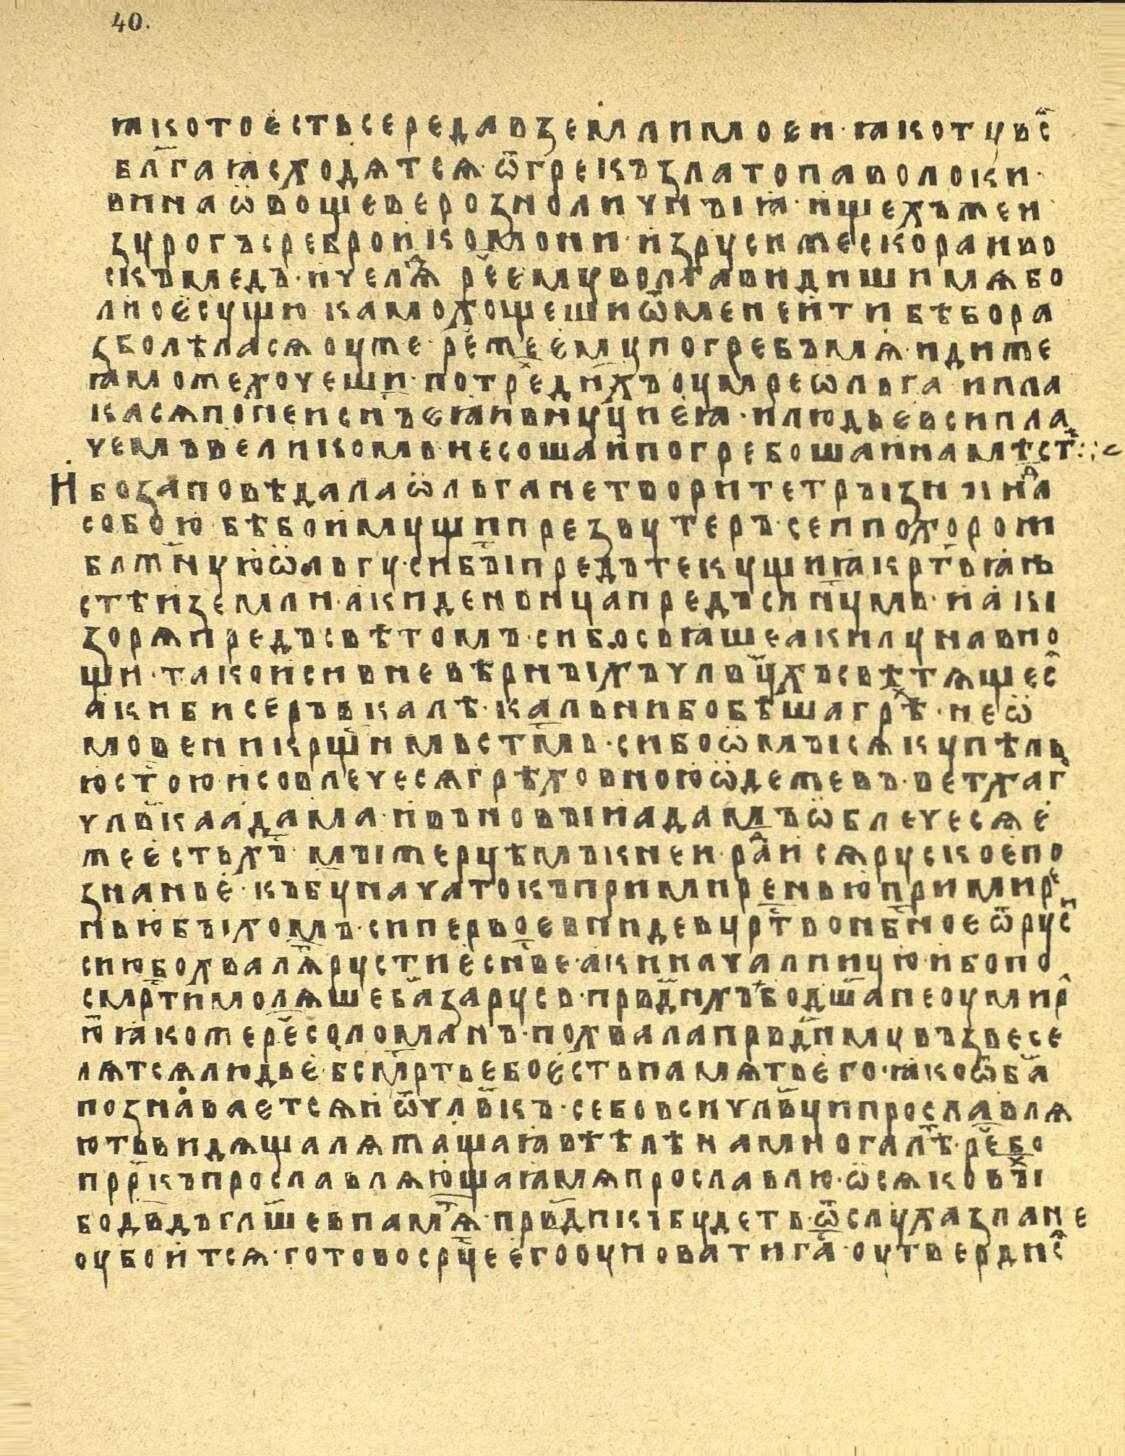 40.
ꙗко то есть середа в земли моеи · ꙗко ту всѧ҇
бл҃гаꙗ сходѧтсѧ · ѿ грекъ злато паволоки ·
вина ѡвощеве розноличныꙗ · и щехъ же и
з урогъ сребро и комони · из руси же скора и во
скъ медъ · и челѧд҇ · рче ему волга видиши мѧ бо
лное сущю камо хощеши ѿ мене ити бѣ бо ра
зболѣласѧ оуже · рче же ему погребъ мѧ · иди же
ꙗможе хочеши · по трехъ дн҃хъ оумре ѡльга · и пла
касѧ по неи сн҃ъ еꙗ и внуци еꙗ · и людье вси пла
чемъ великомъ · несоша и погребоша и на мѣстѣ ·:·
И бо заповѣдала ѡльга не творити трызны на
собою · бѣ бо имущи презвутеръ · сеи похорони
бл҃жную ѡльгу · си бы предътекущиꙗ крт҇ьꙗнь
стѣи земли · аки деньница предъ слн҃цмь · и аки
зорѧ предъ свѣтомъ · си бо сьꙗше аки луна в но
щи · тако и си в невѣрныхъ чл҃вцхъ свѣтѧщесѧ҇
аки бисеръ в калѣ · кальни бо бѣша грѣх҇ · не ѡ
мовени кр҃щнмь ст҃мь · си бо ѡмысѧ купѣль
ю ст҃ою и совлечесѧ грѣховною ѡдежевъ · ветхаг҇
чл҃вка адама · и въ новыи адамъ ѡблечесѧ е
же есть хс҇ъ мы же рцѣмъ к неи · рад҇исѧ руское по
знанье · къ бу҃ начатокъ примиренью примире
нью быхомъ · си первое вниде в цр҇тво нб҃ное ѿ руси
сию бо хвалѧт҇ рустие сн҃ве · аки началницю · ибо по
смр҃ти молѧше ба҃ за русь · првд҇нхъ бо дш҃а не оумир҇
ю ꙗкоже рече соломанъ · похвала првд҇нму възвесе
лѧтсѧ людье · бсм҃ртье бо есть памѧть его · ꙗко ѿ ба҃
познаваетсѧ и ѿ чл҃вкъ · се бо вси чл҃вци прославлѧ
ють видѧща лѧжащаꙗ в тѣлѣ на многа лѣт҇ · рече бо
прр҃къ прославлѧющаꙗ мѧ прославлю · ѡ сѧковых҇
бо дв҃дъ гл҃ше в памѧт҇ · првд҇нкъ будеть · ѿ слуха зла не
оубоитсѧ · готово срд҃це его оуповати на га҃ · оутвердисѧ҇